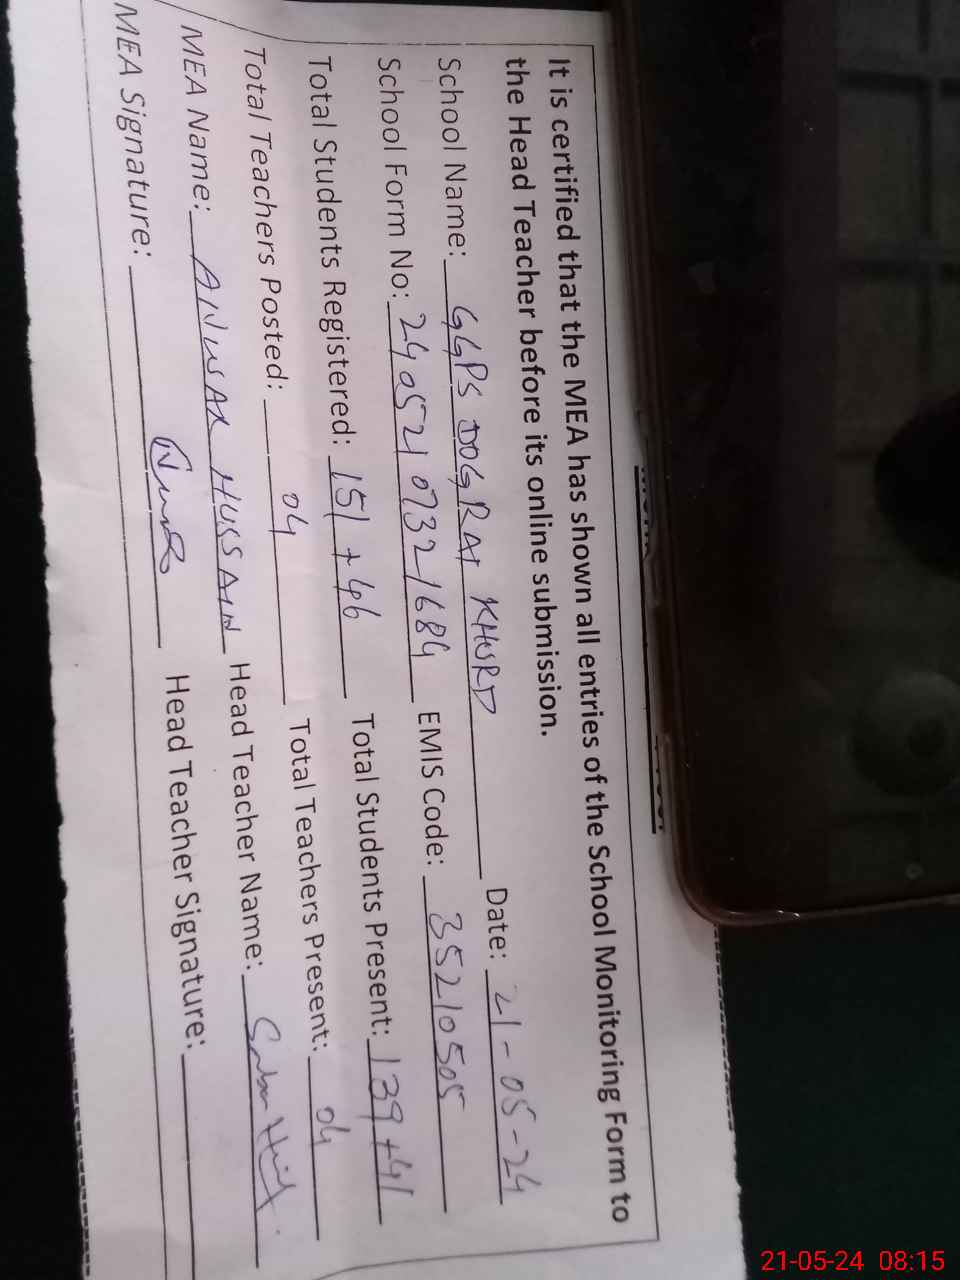 It is certified that the MEA has shown all entries of the School Monitoring Form to
the Head Teacher before its online submission.
School Name: GGPS DOGRAI KHURD Date: 21-05-24
School Form No: 24052107321684 EMIS Code: 35210505
Total Students Registered: 151 + 46 Total Students Present: 139 + 41
Total Teachers Posted: 04 Total Teachers Present: 04
MEA Name: ANWAR HUSSAIN Head Teacher Name:
MEA Signature: Head Teacher Signature:
21-05-24 08:15